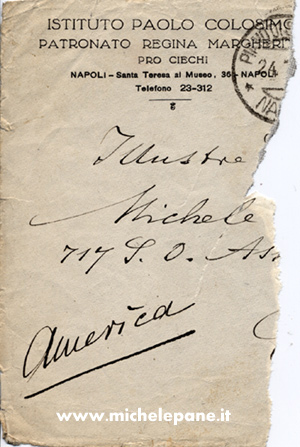 ISTITUTO PAOLO COLOSIMO
PATRONATO REGINA MARGHERI
PRO CIECHI
NAPOLI - Santa Teresa al Museo, 36 - NAPOLI
Telefono 23-312
24
NA
Illustre
Michele
717 S. O. As
America
www.michelepane.it